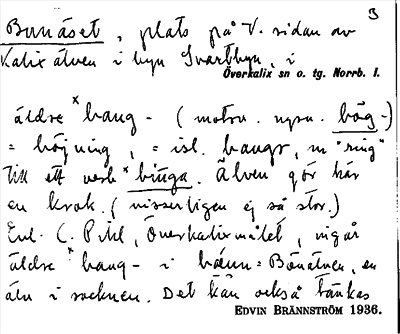 B
Bunäset, plats på V. sidan av
Kalix älven i byn Svartbyn, i
Överkalix sn o. tg. Norrb. l.
äldre *baug- (motsv. nysv. bög-)
= böjning, = isl. baugr, m "ring"
till ett verb *biuga. Älven gör här
en krok. (visserligen ej så stor.)
Enl. C. Pihl, Överkalixmålet, ingår
äldre *baug- i bäunn = Bönälven, en
älv i socknen. Det kan också tänkas
EDVIN BRÄNNSTRÖM 1936.